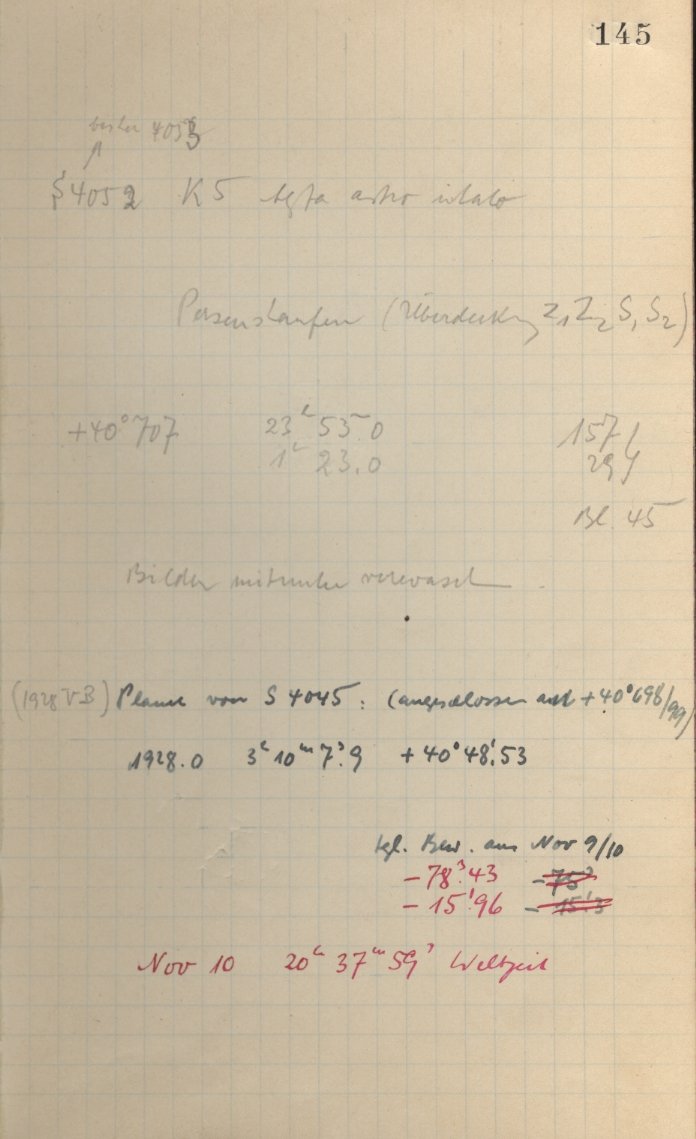 145
besser 4053
S 4052 K5 Agfa astro
Perseushaufen (Überdeckung Z₁ Z₂ S₁ S₂)
+40°707 23ʰ 53ᵐ.0 157
1ʰ 23.0 29
Bl. 45
Bilder mitunter verwaschen.
(1928 VB) Planet von S 4045: (angeschlossen an +40°698/99)
1928.0 3ʰ10ᵐ7ˢ.9 +40°48'.53
tgl. Bew. aus Nov 9/10
-78ˢ.43 -75ˢ
-15'.96 -15'.3
Nov 10 20ʰ 37ᵐ 59ˢ Weltzeit